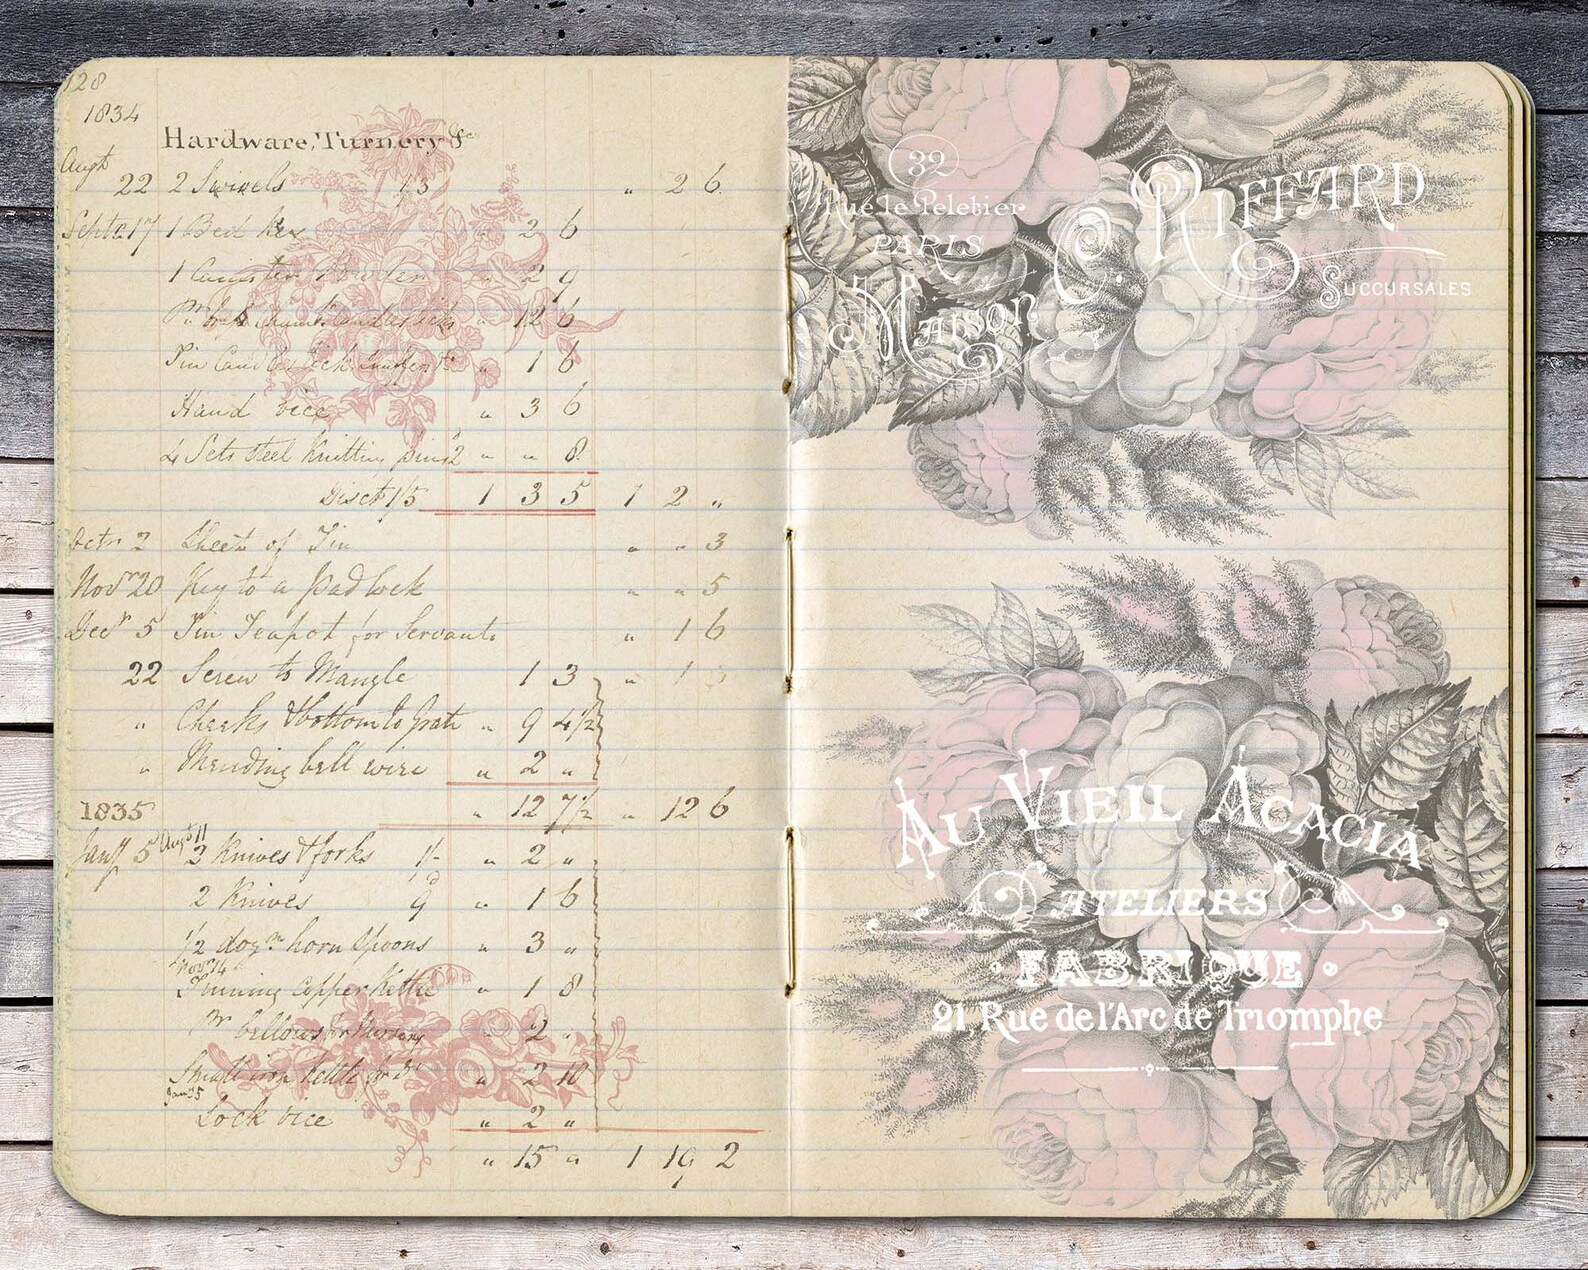 128
1834
Hardware, Turnery &c
Augt 22 2 Swivels 1/3 " 2 6
Septr 17 1 Bed Key " 2 6
1 " 2 9
Pr " 12 6
Tin " 1 6
Hand vice " 3 6
4 Sets Steel Knitting pins 2 " " 8
Disct 1/5 1 3 5 1 2 "
Octr 2 Sheet of Tin " " 3
Novr 20 Key to a Padlock " " 5
Decr 5 Tin Teapot for Servants " 1 6
22 Screw to Mangle 1 3 " 1
" Cheeks & bottom to Grate " 9 4 1/2
" Mending bell wire " 2 "
1835 " 12 7 1/2 " 12 6
Augt 11
Jany 5 3 Knives & forks 1/- " 2 "
2 Knives 9d " 1 6
1/2 dozn horn Spoons " 3 "
Novr 14
Tinning Copper Kettle " 1 8
Pr bellows for Nursery " 2 "
Small iron Kettle for Do " 2 10
Jany 5
Lock vice " 2 "
" 15 " 1 19 2
32
Rue le Peletier
PARIS
MAISON C. RIFFARD
SUCCURSALES
AU VIEIL ACACIA
ATELIERS
• FABRIQUE •
21, Rue de l'Arc de Triomphe